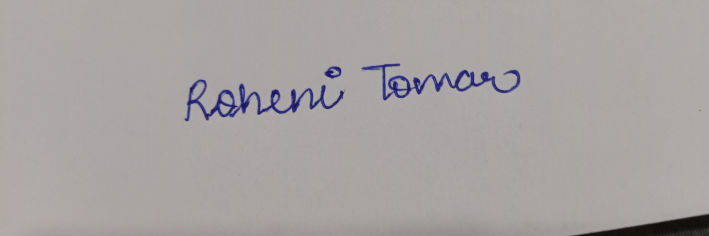 Roheni Tomar